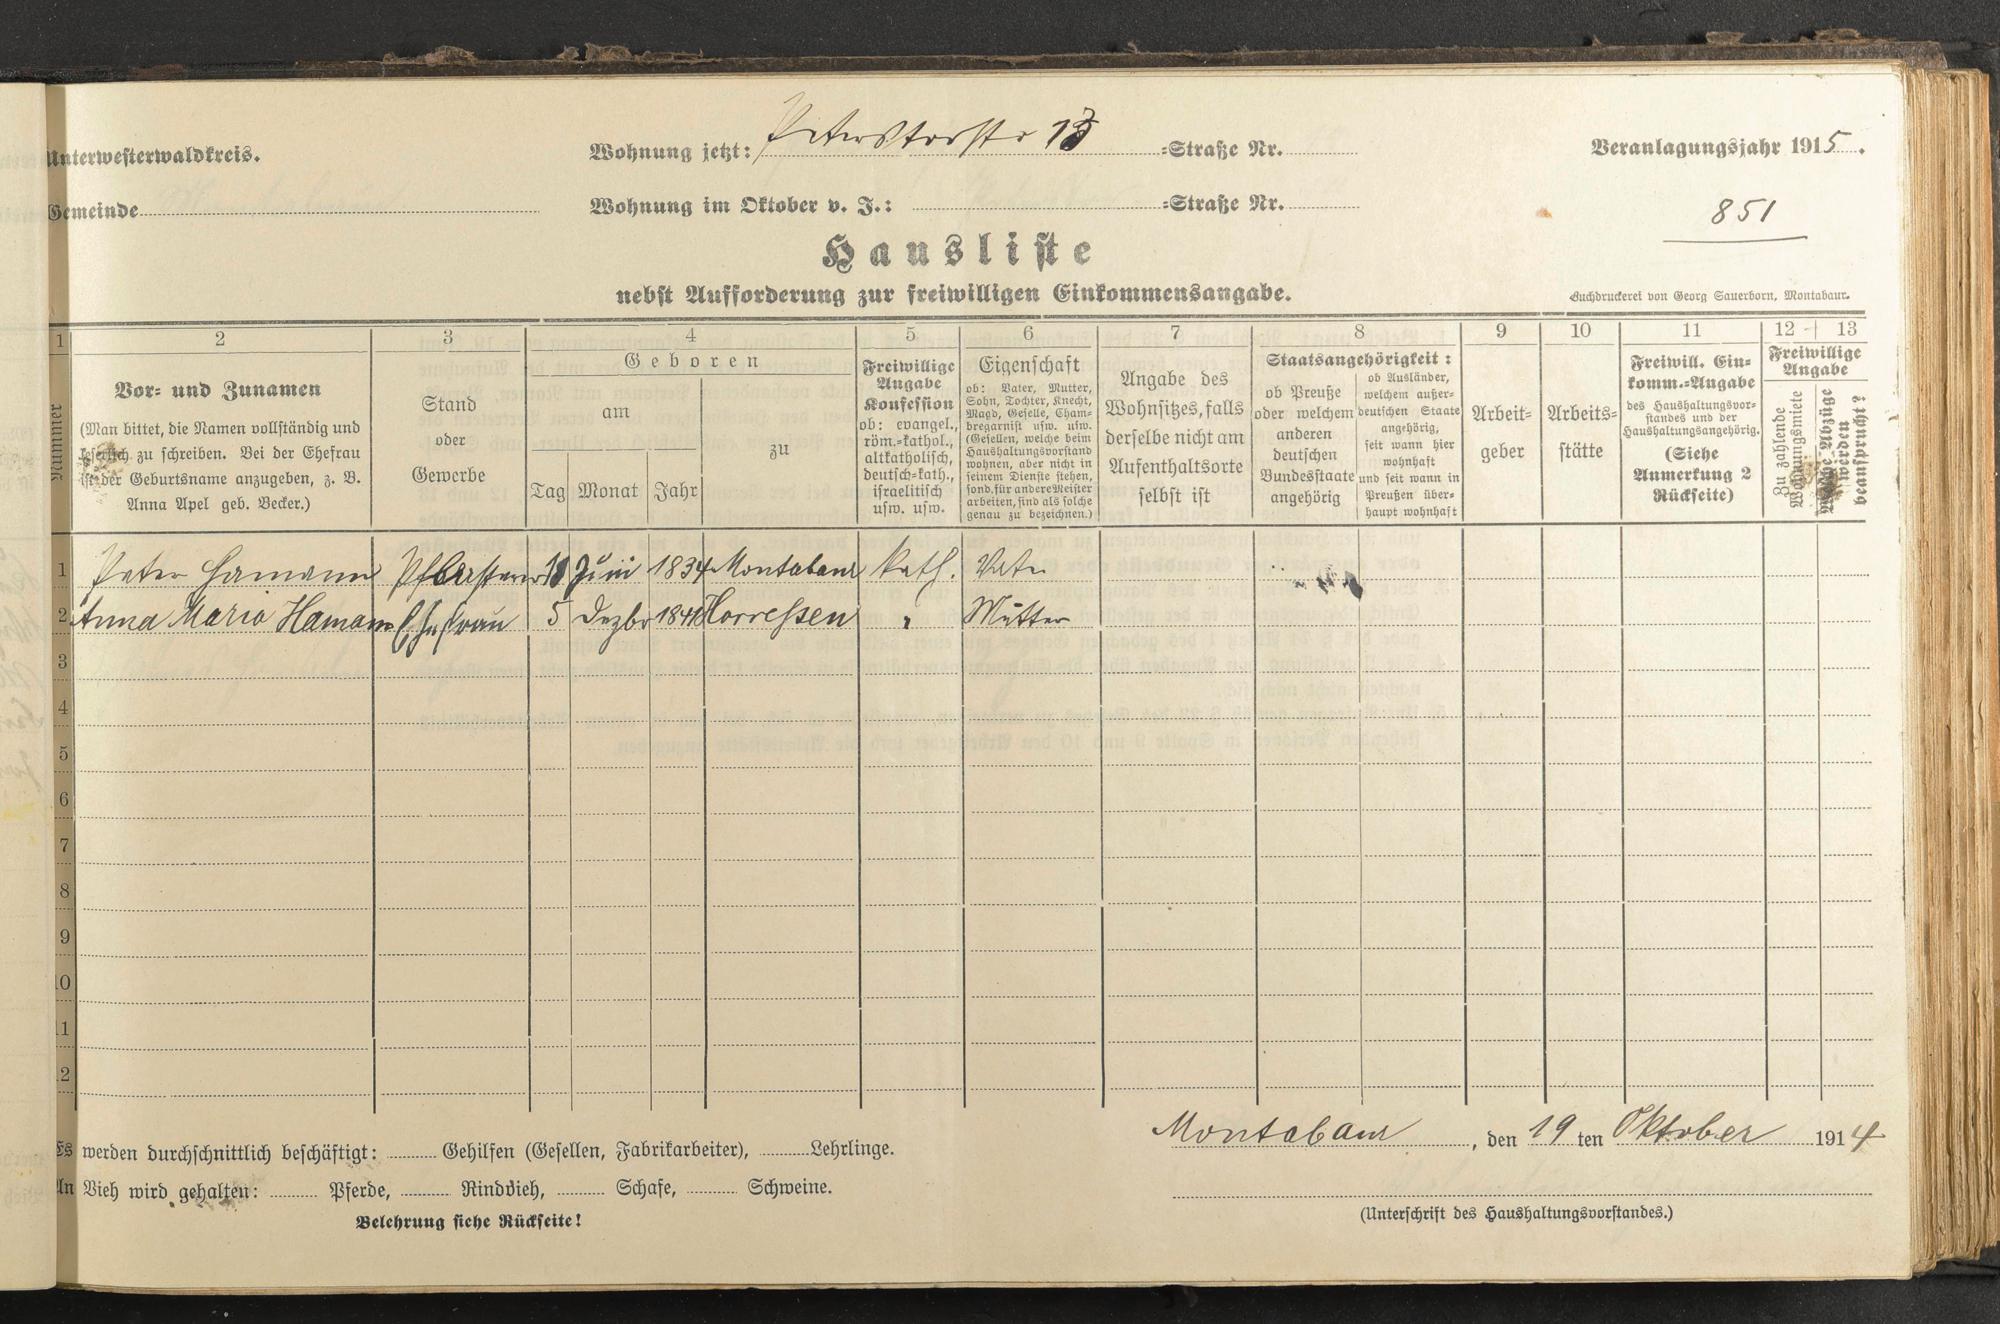 Unterwesterwaldkreis.
Wohnung jetzt: Peterstorstr 13 =Straße Nr.
Veranlagungsjahr 1915.
Gemeinde
Wohnung im Oktober v. J.: =Straße Nr.
851
Hausliste
nebst Aufforderung zur freiwilligen Einkommensangabe.
Buchdruckerei von Georg Sauerborn, Montabaur.
1 2 3 4 5 6 7 8 9 10 11 12 13
Nummer
Vor- und Zunamen
(Man bittet, die Namen vollständig und
leserlich zu schreiben. Bei der Ehefrau
ist der Geburtsname anzugeben, z. B.
Anna Apel geb. Becker.)
Stand
oder
Gewerbe
Geboren
am
Tag Monat Jahr
zu
Freiwillige
Angabe
Konfession
ob: evangel.,
röm.=kathol.,
altkatholisch,
deutsch=kath.,
israelitisch
usw. usw.
Eigenschaft
ob: Vater, Mutter,
Sohn, Tochter, Knecht,
Magd, Geselle, Cham-
bregarnist usw. usw.
(Gesellen, welche beim
Haushaltungsvorstand
wohnen, aber nicht in
seinem Dienste stehen,
sond. für andere Meister
arbeiten, sind als solche
genau zu bezeichnen.)
Angabe des
Wohnsitzes, falls
derselbe nicht am
Aufenthaltsorte
selbst ist
Staatsangehörigkeit:
ob Preuße
oder welchem
anderen
deutschen
Bundesstaate
angehörig
ob Ausländer,
welchem außer-
deutschen Staate
angehörig,
seit wann hier
wohnhaft
und seit wann in
Preußen über-
haupt wohnhaft
Arbeit-
geber
Arbeits-
stätte
Freiwill. Ein-
komm.=Angabe
des Haushaltungsvor-
standes und der
Haushaltungsangehörig.
(Siehe
Anmerkung 2
Rückseite)
Freiwillige
Angabe
Zu zahlende
Wohnungsmiete
Abzüge
werden
beansprucht?
1 Peter Hamann Pflasterer 18 Juni 1834 Montabaur kath. Vater
2 Anna Maria Hamann Ehefrau 5 Dezbr 1841 Horressen " Mutter
3
4
5
6
7
8
9
10
11
12
Es werden durchschnittlich beschäftigt: Gehilfen (Gesellen, Fabrikarbeiter), Lehrlinge.
Montabaur, den 19 ten Oktober 1914
An Vieh wird gehalten: Pferde, Rindvieh, Schafe, Schweine.
(Unterschrift des Haushaltungsvorstandes.)
Belehrung siehe Rückseite!